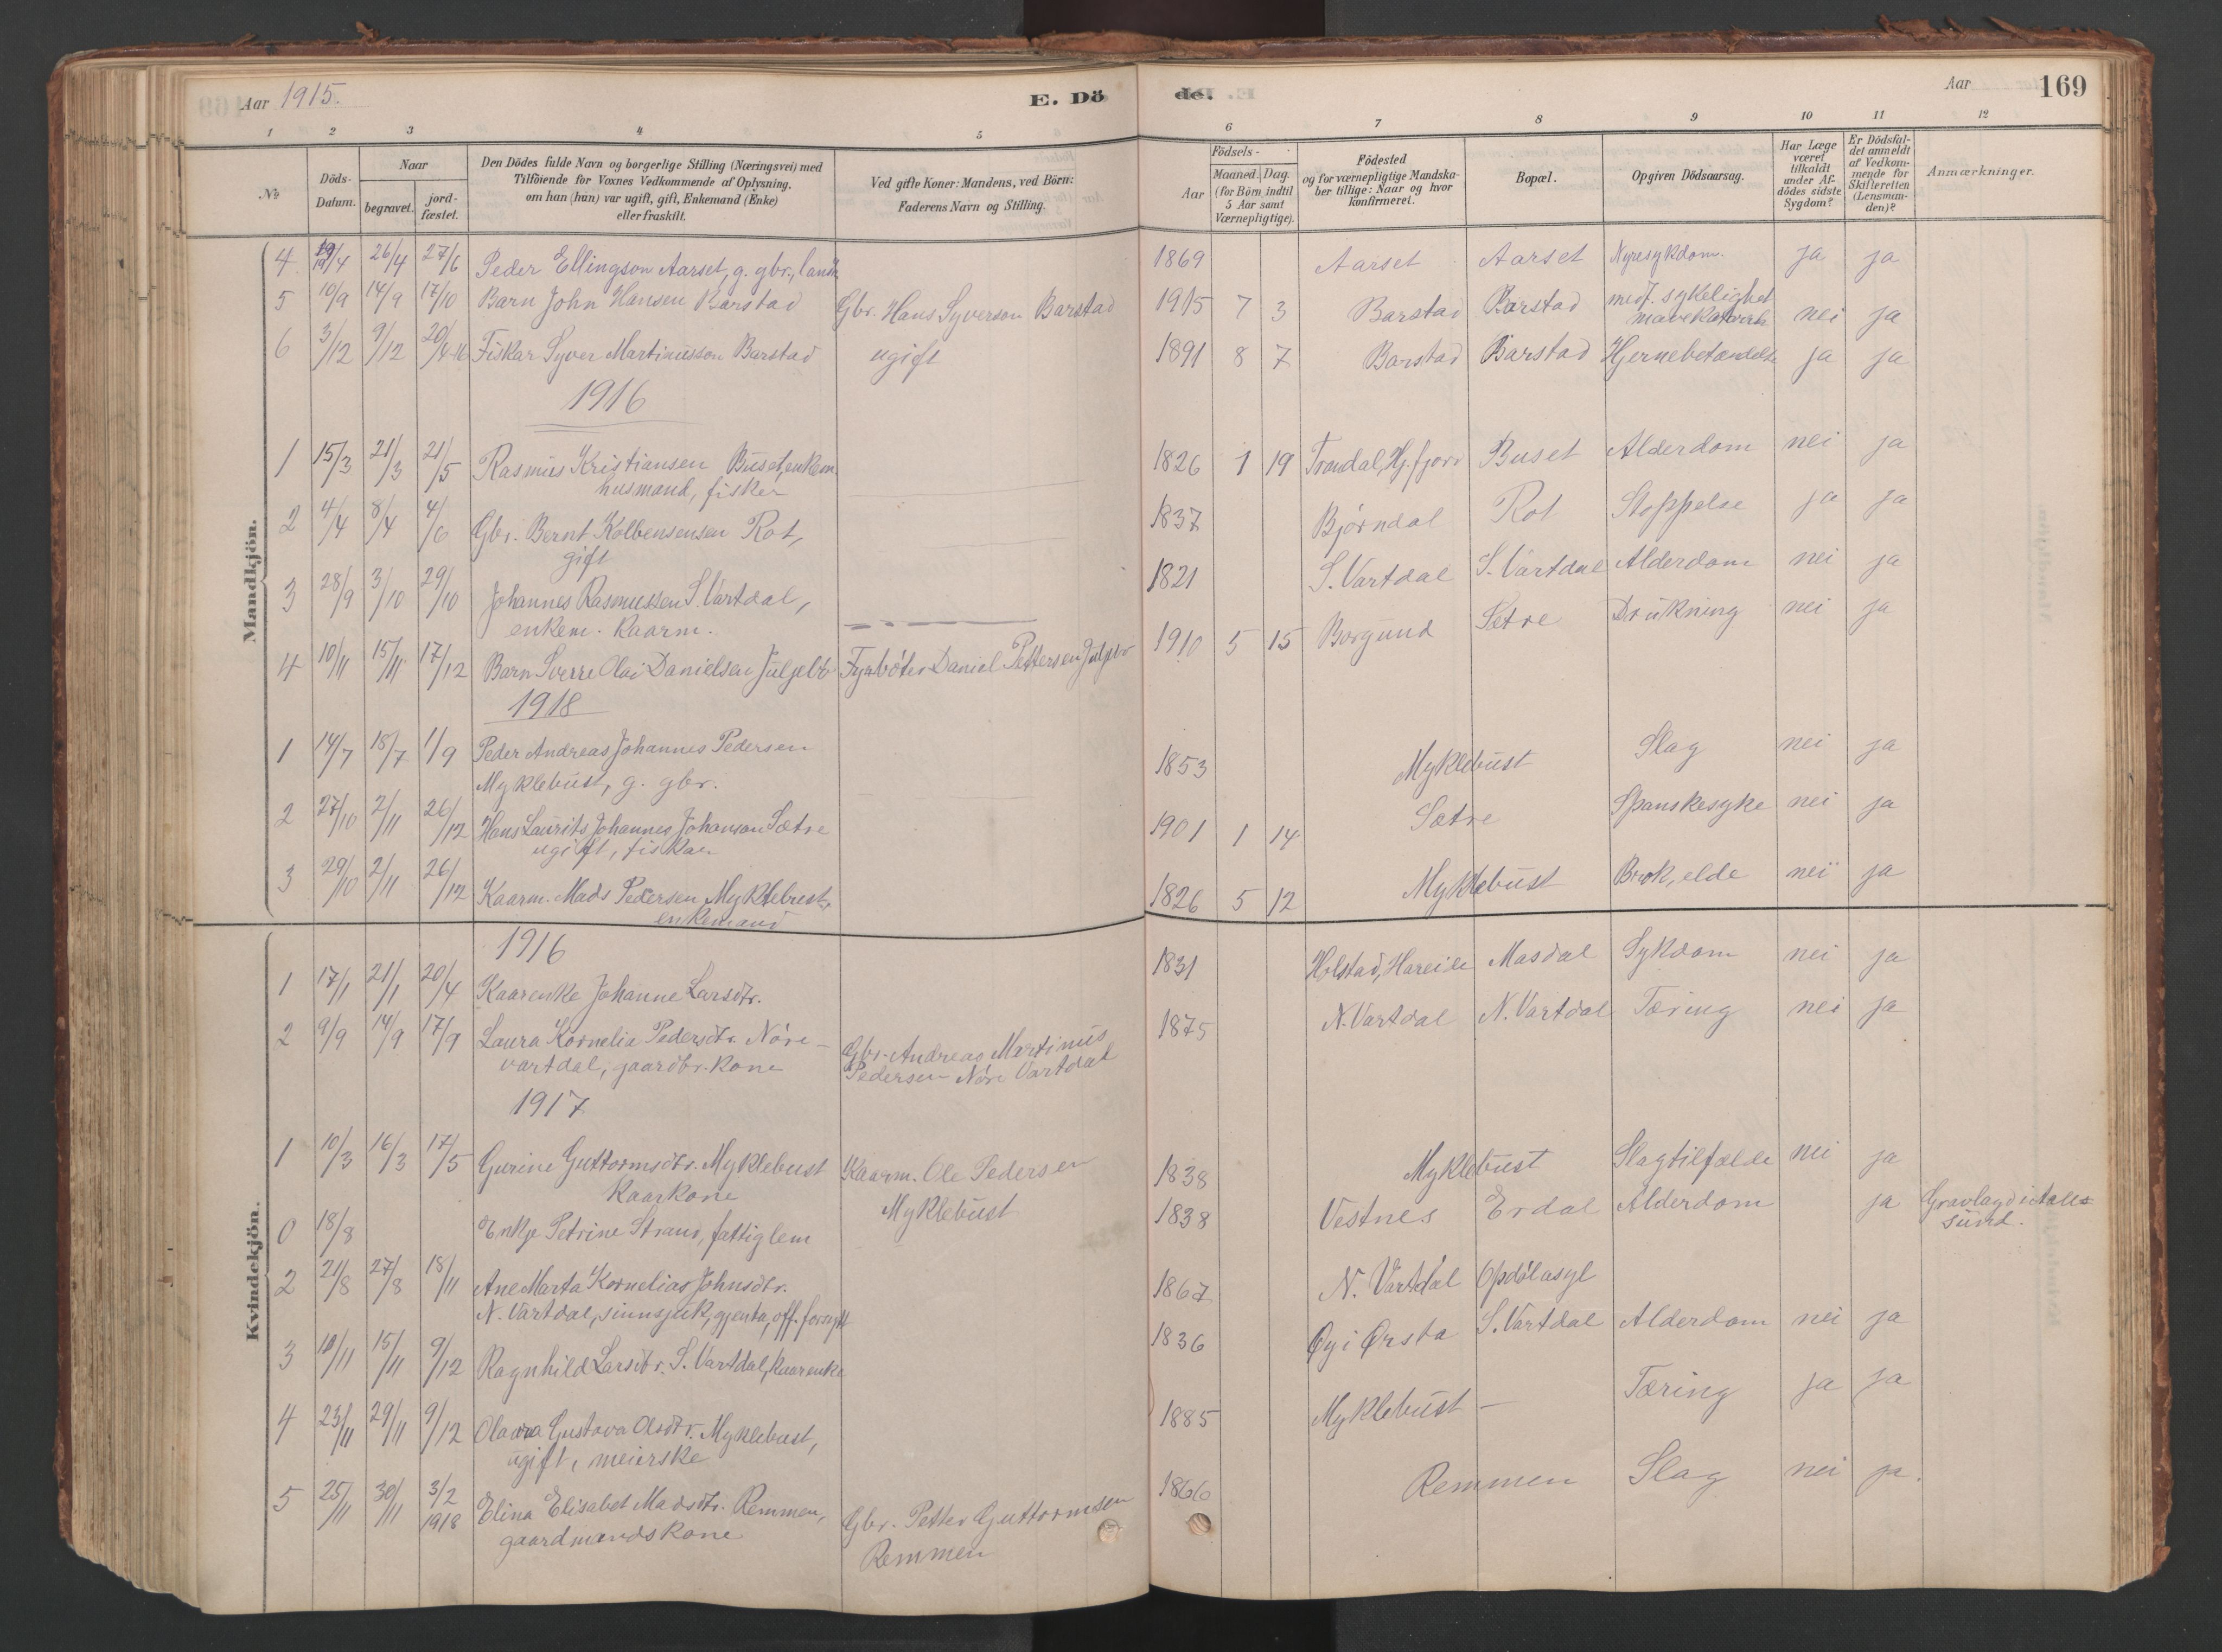 Aar 1915. E. Dö de. Aar 169
1 2 3 4 5 6 7 8 9 10 11 12
No.
Döds-Datum.
Naar
begravet. jordfæstet.
Den Dödes fulde Navn og borgerlige Stilling (Næringsvei) med
Tilföiende for Voxnes Vedkommende af Oplysning.
om han (hun) var ugift, gift, Enkemand (Enke)
eller fraskilt.
Ved gifte Koner: Mandens, ved Börn:
Faderens Navn og Stilling.
Födsels-
Aar Maaned. Dag.
(for Börn indtil
5 Aar samt
Værnepligtige).
Födested
og for værnepligtige Mandska-
ber tillige: Naar og hvor
konfirmeret.
Bopæl.
Opgiven Dödsaarsag.
Har Læge
været
tilkaldt
under Af-
dödes sidste
Sygdom?
Er Dödsfal-
det anmeldt
af Vedkom-
mende for
Skifteretten
(Lensman-
den)?
Anmærkninger.
Mandkjön.
4 19/4 26/4 27/6 Peder Ellingson Aarset, g. gbr., 1869 Aarset Aarset Nyresykdom. ja ja
5 10/9 14/9 17/10 Barn John Hansen Barstad Gbr. Hans Syverson Barstad 1915 7 3 Barstad Barstad medf. sykelighet nei ja
mavekatarrh
6 3/12 9/12 20/4-16 Fiskar Syver Martinusson Barstad ugift 1891 8 7 Barstad Barstad Hjernebetændelse ja ja
1916
1 15/3 21/3 21/5 Rasmus Kristiansen Buset, enkem. 1826 1 19 Trandal, Hj.fjord Buset Alderdom nei ja
husmand, fisker
2 4/4 8/4 4/6 Gbr. Bernt Kolbensensen Rot, 1837 Bjørndal Rot Stoppelse ja ja
gift
3 28/9 3/10 29/10 Johannes Rasmussen S. Vartdal, 1821 S. Vartdal S. Vartdal Alderdom nei ja
enkem. kaarm.
4 10/11 15/11 17/12 Barn Sverre Olai Danielsen Juljebø Fyrbøter Daniel Pettersen Juljebø 1910 5 15 Borgund Setre Drukning nei ja
1918
1 14/7 18/7 1/9 Peder Andreas Johannes Pedersen 1853 Myklebust Slag nei ja
Myklebust, g. gbr.
2 27/10 2/11 26/12 Hans Laurits Johannes Johanson Sætre 1901 1 14 Sætre Spanskesyke nei ja
ugift, fiskar
3 29/10 2/11 26/12 Kaarm. Mads Pedersen Myklebust, 1826 5 12 Myklebust Brok, elde nei ja
enkemand
Kvindekjön.
1916
1 17/1 21/1 20/4 Kaarenke Johanne Larsdtr. 1831 Holstad, Hareide Masdal Sykdom nei ja
2 9/9 14/9 17/9 Laura Kornelia Pedersdtr. Nøre- Gbr. Andreas Martinus 1875 N. Vartdal N. Vartdal Tæring nei ja
vartdal, gaardbr. kone Pedersen Nøre Vartdal
1917
1 10/3 16/3 17/5 Gurine Guttormsdtr. Myklebust Kaarm. Ole Pedersen 1838 Myklebust Slagtilfælde nei ja
Kaarkone Myklebust
0 18/8 Enkje Petrine Strand, fattiglem 1838 Vestnes Erdal Alderdom ja Gravlagd i Aale-
sund.
2 21/8 27/8 18/11 Ane Marta Kornelias Johnsdtr. 1867 N. Vartdal Opdølasyl
N. Vartdal, sinnsjuk, gjenta, off. forsytt
3 10/11 15/11 9/12 Ragnhild Larsdtr. S. Vartdal, kaarenke 1836 Øy i Ørsta S. Vartdal Alderdom nei ja
4 23/11 29/11 9/12 Gustava Olsdtr. Myklebust, 1885 Myklebust - Tæring ja ja
ugift, meierske
5 25/11 30/11 3/2 1918 Elina Elisabet Madsdtr. Remmen, Gbr. Petter Guttormsen 1866 Remmen Slag nei ja.
gaardmandskone Remmen